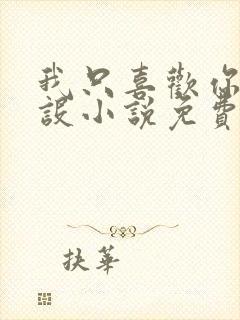 我只喜歡你
設小說免費
抉華